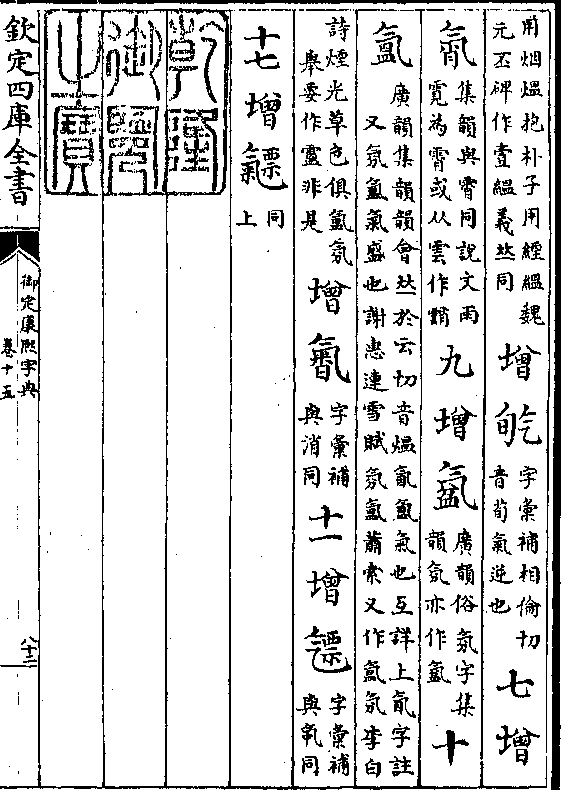 用烟熅抱朴子用經緼魏
元丕碑作壹緼義𠀤同
增
字彙補相倫切
音荀氣逆也
七增
集韻與霄同說文雨
霓為霄或从雲作
九增
廣韻俗氛字集
韻氛亦作氳
十
氳
廣韻集韻韻會𠀤於云切音熅氤氳氣也互詳上氤字註
又氛氳氣盛也謝惠連雪賦氛氳蕭索又作氳氛李白
詩煙光草色俱氳氛
舉要作靈非是
增
字彙補
與消同
十一增
字彙補
與氣同
十七增
同
上
乾隆
御覽
之寶
欽定四庫全書
御定康熙字典
卷十五
八十二